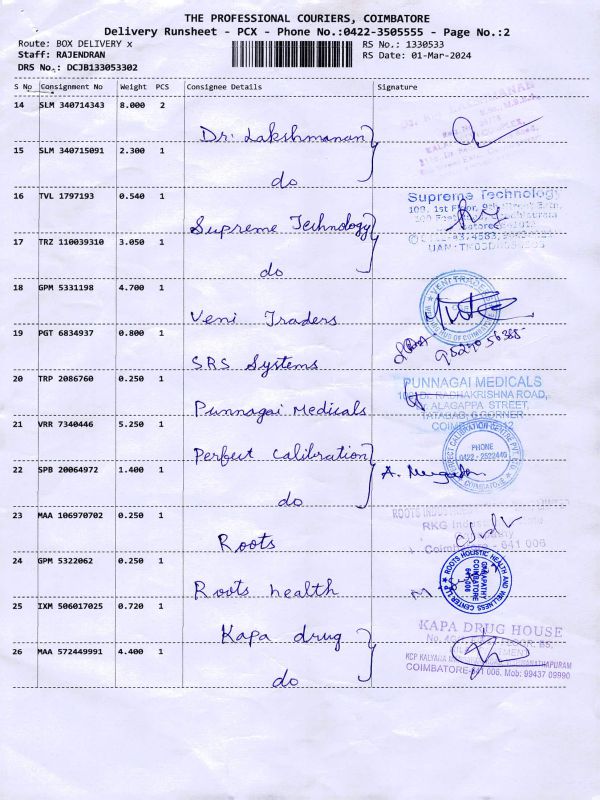 THE PROFESSIONAL COURIERS, COIMBATORE
Delivery Runsheet - PCX - Phone No.:0422-3505555 - Page No.:2
Route: BOX DELIVERY x RS No.: 1330533
Staff: RAJENDRAN RS Date: 01-Mar-2024
DRS No.: DCJB133053302
S No Consignment No Weight PCS Consignee Details Signature
14 SLM 340714343 8.000 2
Dr. Lakshmanan
15 SLM 340715091 2.300 1
do
16 TVL 1797193 0.540 1
Supreme Technology
Supreme Technology
17 TRZ 110039310 3.050 1
do
18 GPM 5331198 4.700 1
VENI TRADERS
Veni Traders
19 PGT 6834937 0.800 1
SRS Systems
20 TRP 2086760 0.250 1
PUNNAGAI MEDICALS
RADHAKRISHNA ROAD,
ALAGAPPA STREET,
TATABAD, G CORNER
Punnagai Medicals
21 VRR 7340446 5.250 1
PERFECT CALIBRATION CENTRE PVT. LTD.
PHONE
0422 - 2522446
COIMBATORE
Perfect Calibration
22 SPB 20064972 1.400 1
do
23 MAA 106970702 0.250 1
RKG
Coimbatore - 641 006
Roots
24 GPM 5322062 0.250 1
ROOTS HOLISTIC HEALTH AND WELLNESS CENTER LLP
GANAPATHY
COIMBATORE
641 006
Roots health
25 IXM 506017025 0.720 1
KAPA DRUG HOUSE
Kapa drug
26 MAA 572449991 4.400 1
COIMBATORE-641 006, Mob: 99437 09990
do